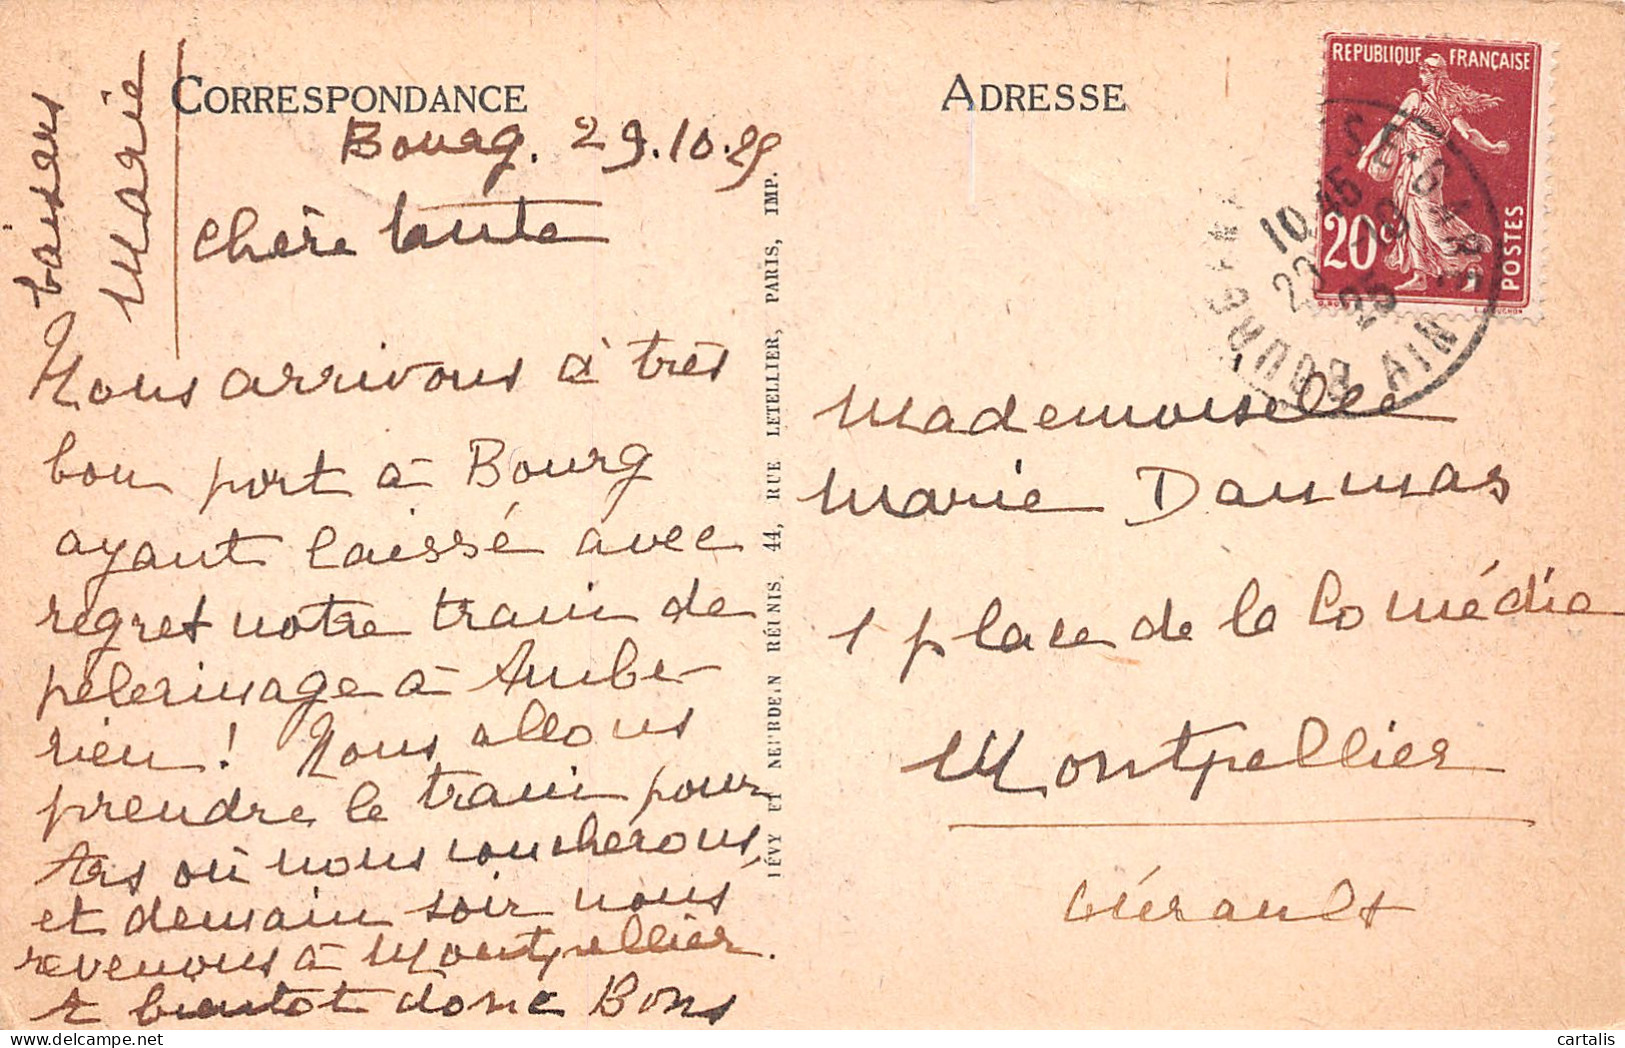 CORRESPONDANCE
Bourg. 29.10.25
Chère tante
Nous arrivons à très
bon port à Bourg
ayant laissé avec
regret notre train de
pèlerinage à Ambe-
rieu! Nous allons
prendre le train pour
Ars où nous coucherons,
et demain soir nous
revenons à Montpellier.
à bientot donc Bons
baisers
Marie
LÉVY ET NEURDEIN RÉUNIS, 44, RUE LETELLIER, PARIS, IMP.
ADRESSE
REPUBLIQUE FRANÇAISE
20c
POSTES
10 45
25
BOURG
AIN
Mademoiselle
Marie Daumas
1 place de la Comédie
Montpellier
Hérault
cartalis